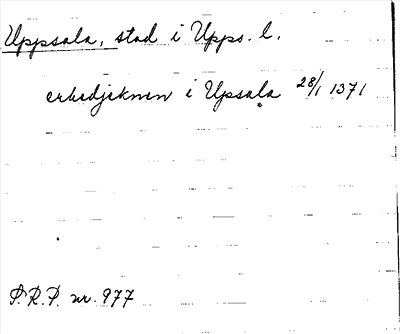 Uppsala, stad i Upps. l.
erkedjeknen i Upsala 28/1 1371
S.R.P. nr. 977